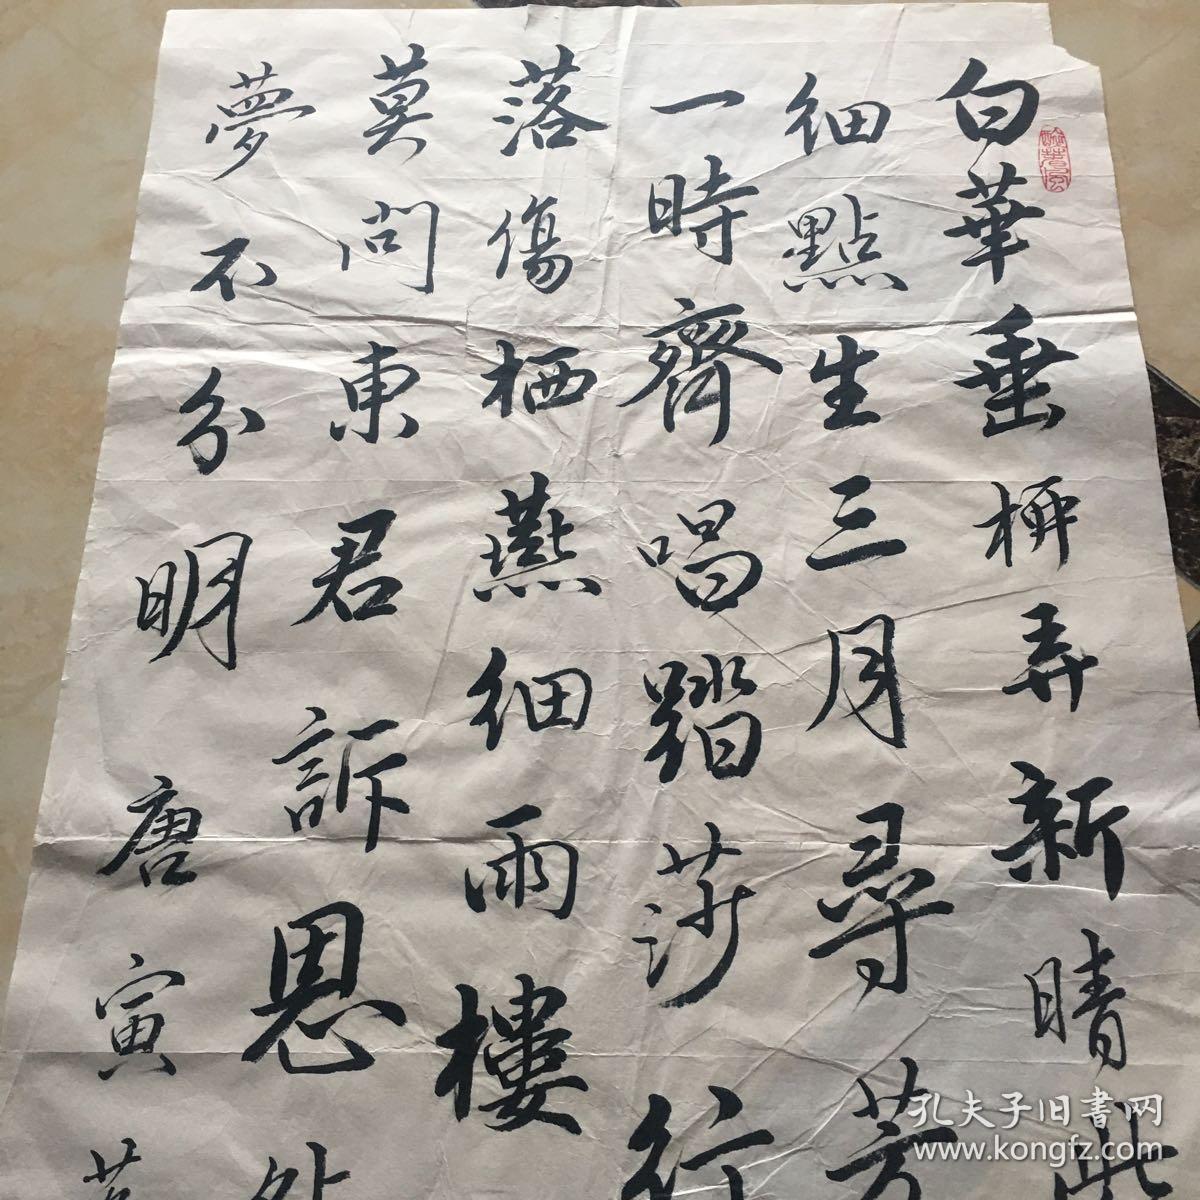 白華垂柳弄新晴此
細點生三月尋芳
一時齊唱踏莎行
落傷栖燕細雨樓
莫問東君訴恩
夢不分明 唐寅
孔夫子旧書网
www.kongfz.com